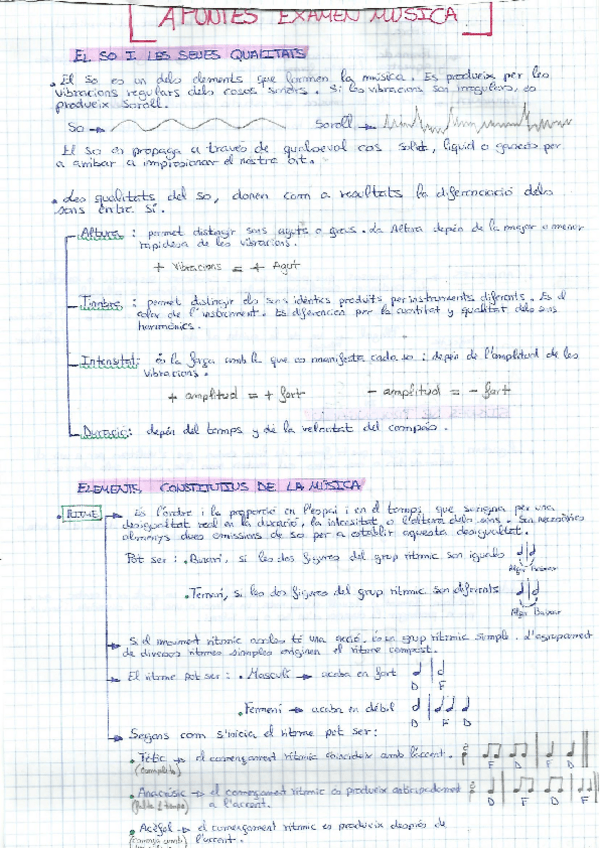 APUNTES EXAMEN MÚSICA
EL SO I LES SEVES QUALITATS
• El so es un dels elements que formen la música. Es produeix per les
vibracions regulars dels cosos sonors. Si les vibracions son irregulars, es
produeix soroll.
So → Soroll →
El so es propaga a través de qualsevol cos solid, liquid o gaseós per
a arribar a impresionar el nostre oït.
• Les qualitats del so, donen com a resultats la diferenciació dels
sons entre sí.
Altura : permet distingir sons aguts o greus. La Altura depén de la major o menor
rapidesa de les vibracions.
+ Vibracions = + Agut
Timbre : permet distingir dos sons idèntics produits per instruments diferents. Es el
color de l'instrument. Es diferencien per la cantitat y qualitat dels sons
harmònics.
Intensitat: és la força amb la que es manifesta cada so : depén de l'amplitud de les
vibracions.
+ amplitud = + fort - amplitud = - fort
Duració: depén del temps y de la velocitat del compás.
ELEMENTS CONSTITUTIUS DE LA MÚSICA
• RITME → És l'ordre i la proporció en l'espai i en el temps, que per una
desigualtat real en la duració, la intesitat o l'altura dels sons. Son necesàries
almenys dues emissions de so per a establir aquesta desigualtat.
Pot ser : • Binari, si les dos figures del grup rítmic son iguals
Alçar Baixar
• Ternari, si les dos figures del grup rítmic son diferents
Alça Baixar
→ Si el moviment rítmic sols té una acció, és un grup rítmic simple. L'agrupament
de diversos ritmes simples originen el ritme compost.
→ El ritme pot ser : • Masculí → acaba en fort
D F
• Femení → acaba en dèbil
D F D
→ Segons com s'inicia el ritme pot ser:
• Tètic → el començament rítmic coincideix amb l'accent.
(complet)
F D F D
• Anacrúsic → el començament rítmic es produeix anticipadament
a l'accent.
D F D F
• Acèfal → el començament rítmic es produeix després de
l'accent.